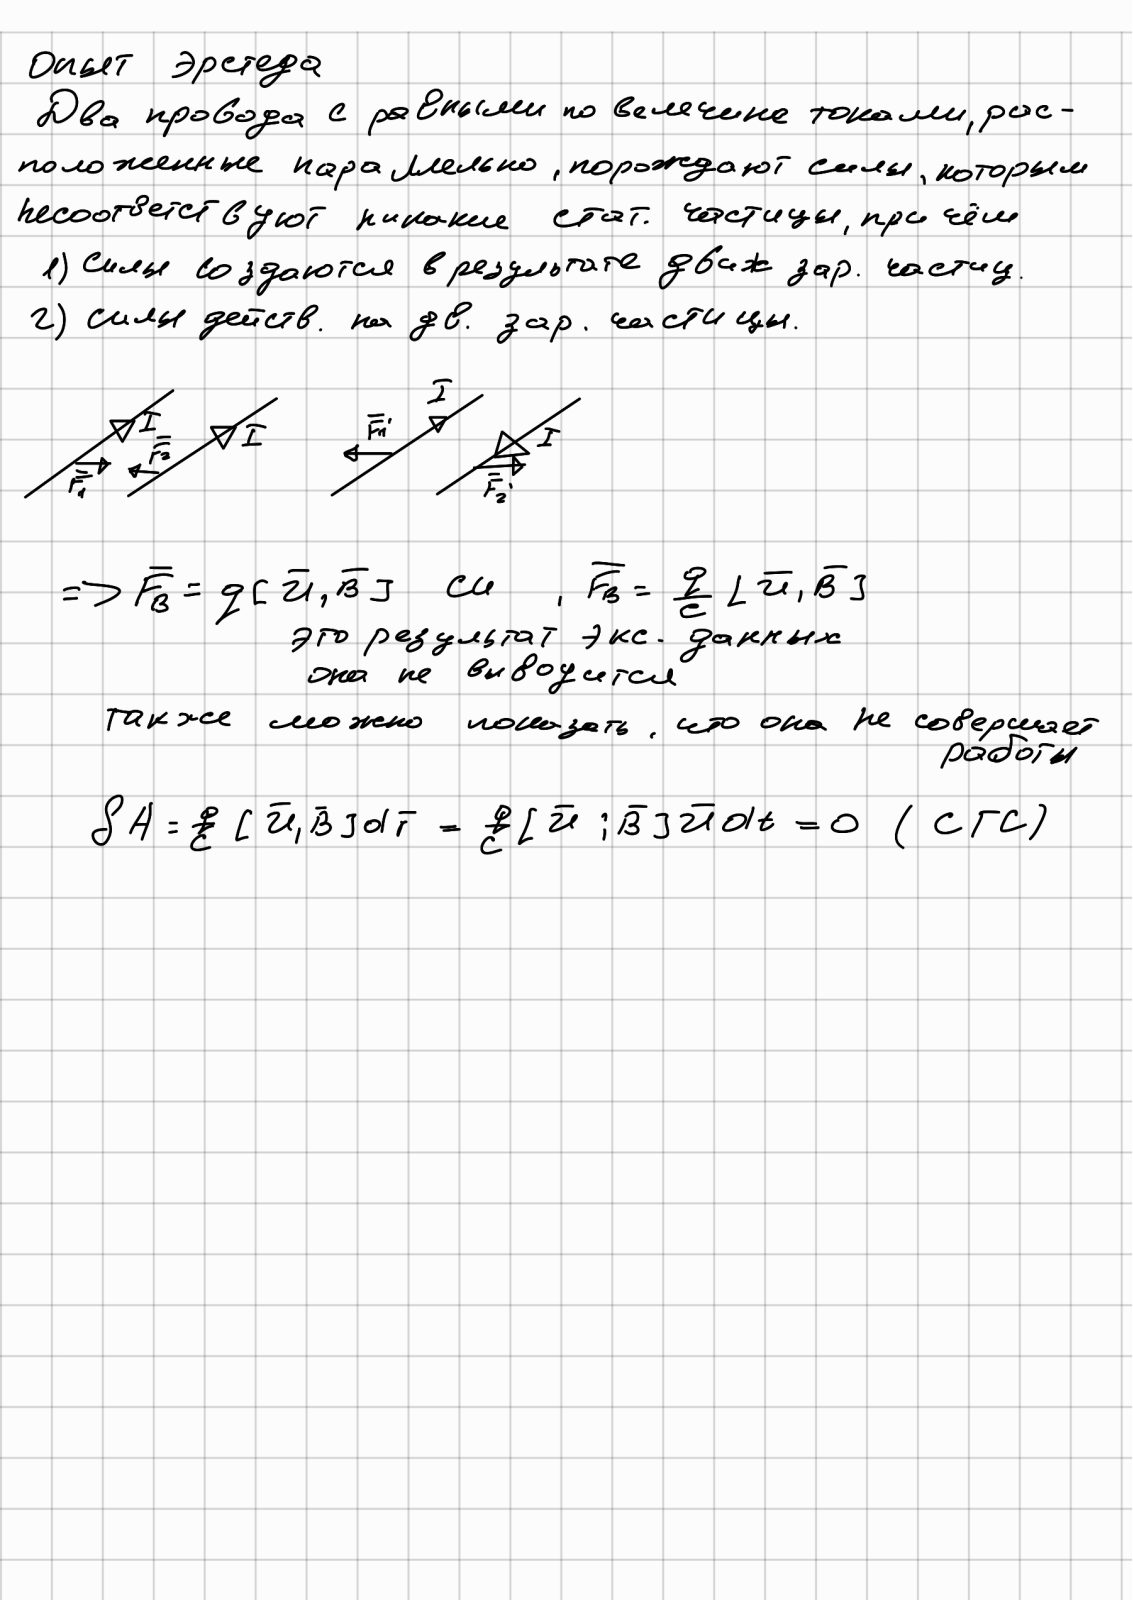 Опыт Эрстеда
Два провода с равными по велечине токами, рас-
положенные параллельно, порождают силы, которым
несоответствуют никакие стат. частицы, при чём
1) Силы создаются в результате движ зар. частиц.
2) силы действ. на дв. зар. частицы.
I I F̅₁ F̅₂ I̅ I F̅₁' F̅₂'
=> F̅_B = q[u̅, B̅] СИ , F̅_B = q/c [u̅, B̅]
это результат экс. данных
она не выводится
также можно показать, что она не совершает
работы
δA = q/c [u̅, B̅]dr̅ = q/c [u̅ ; B̅]u̅dt = 0 (СГС)